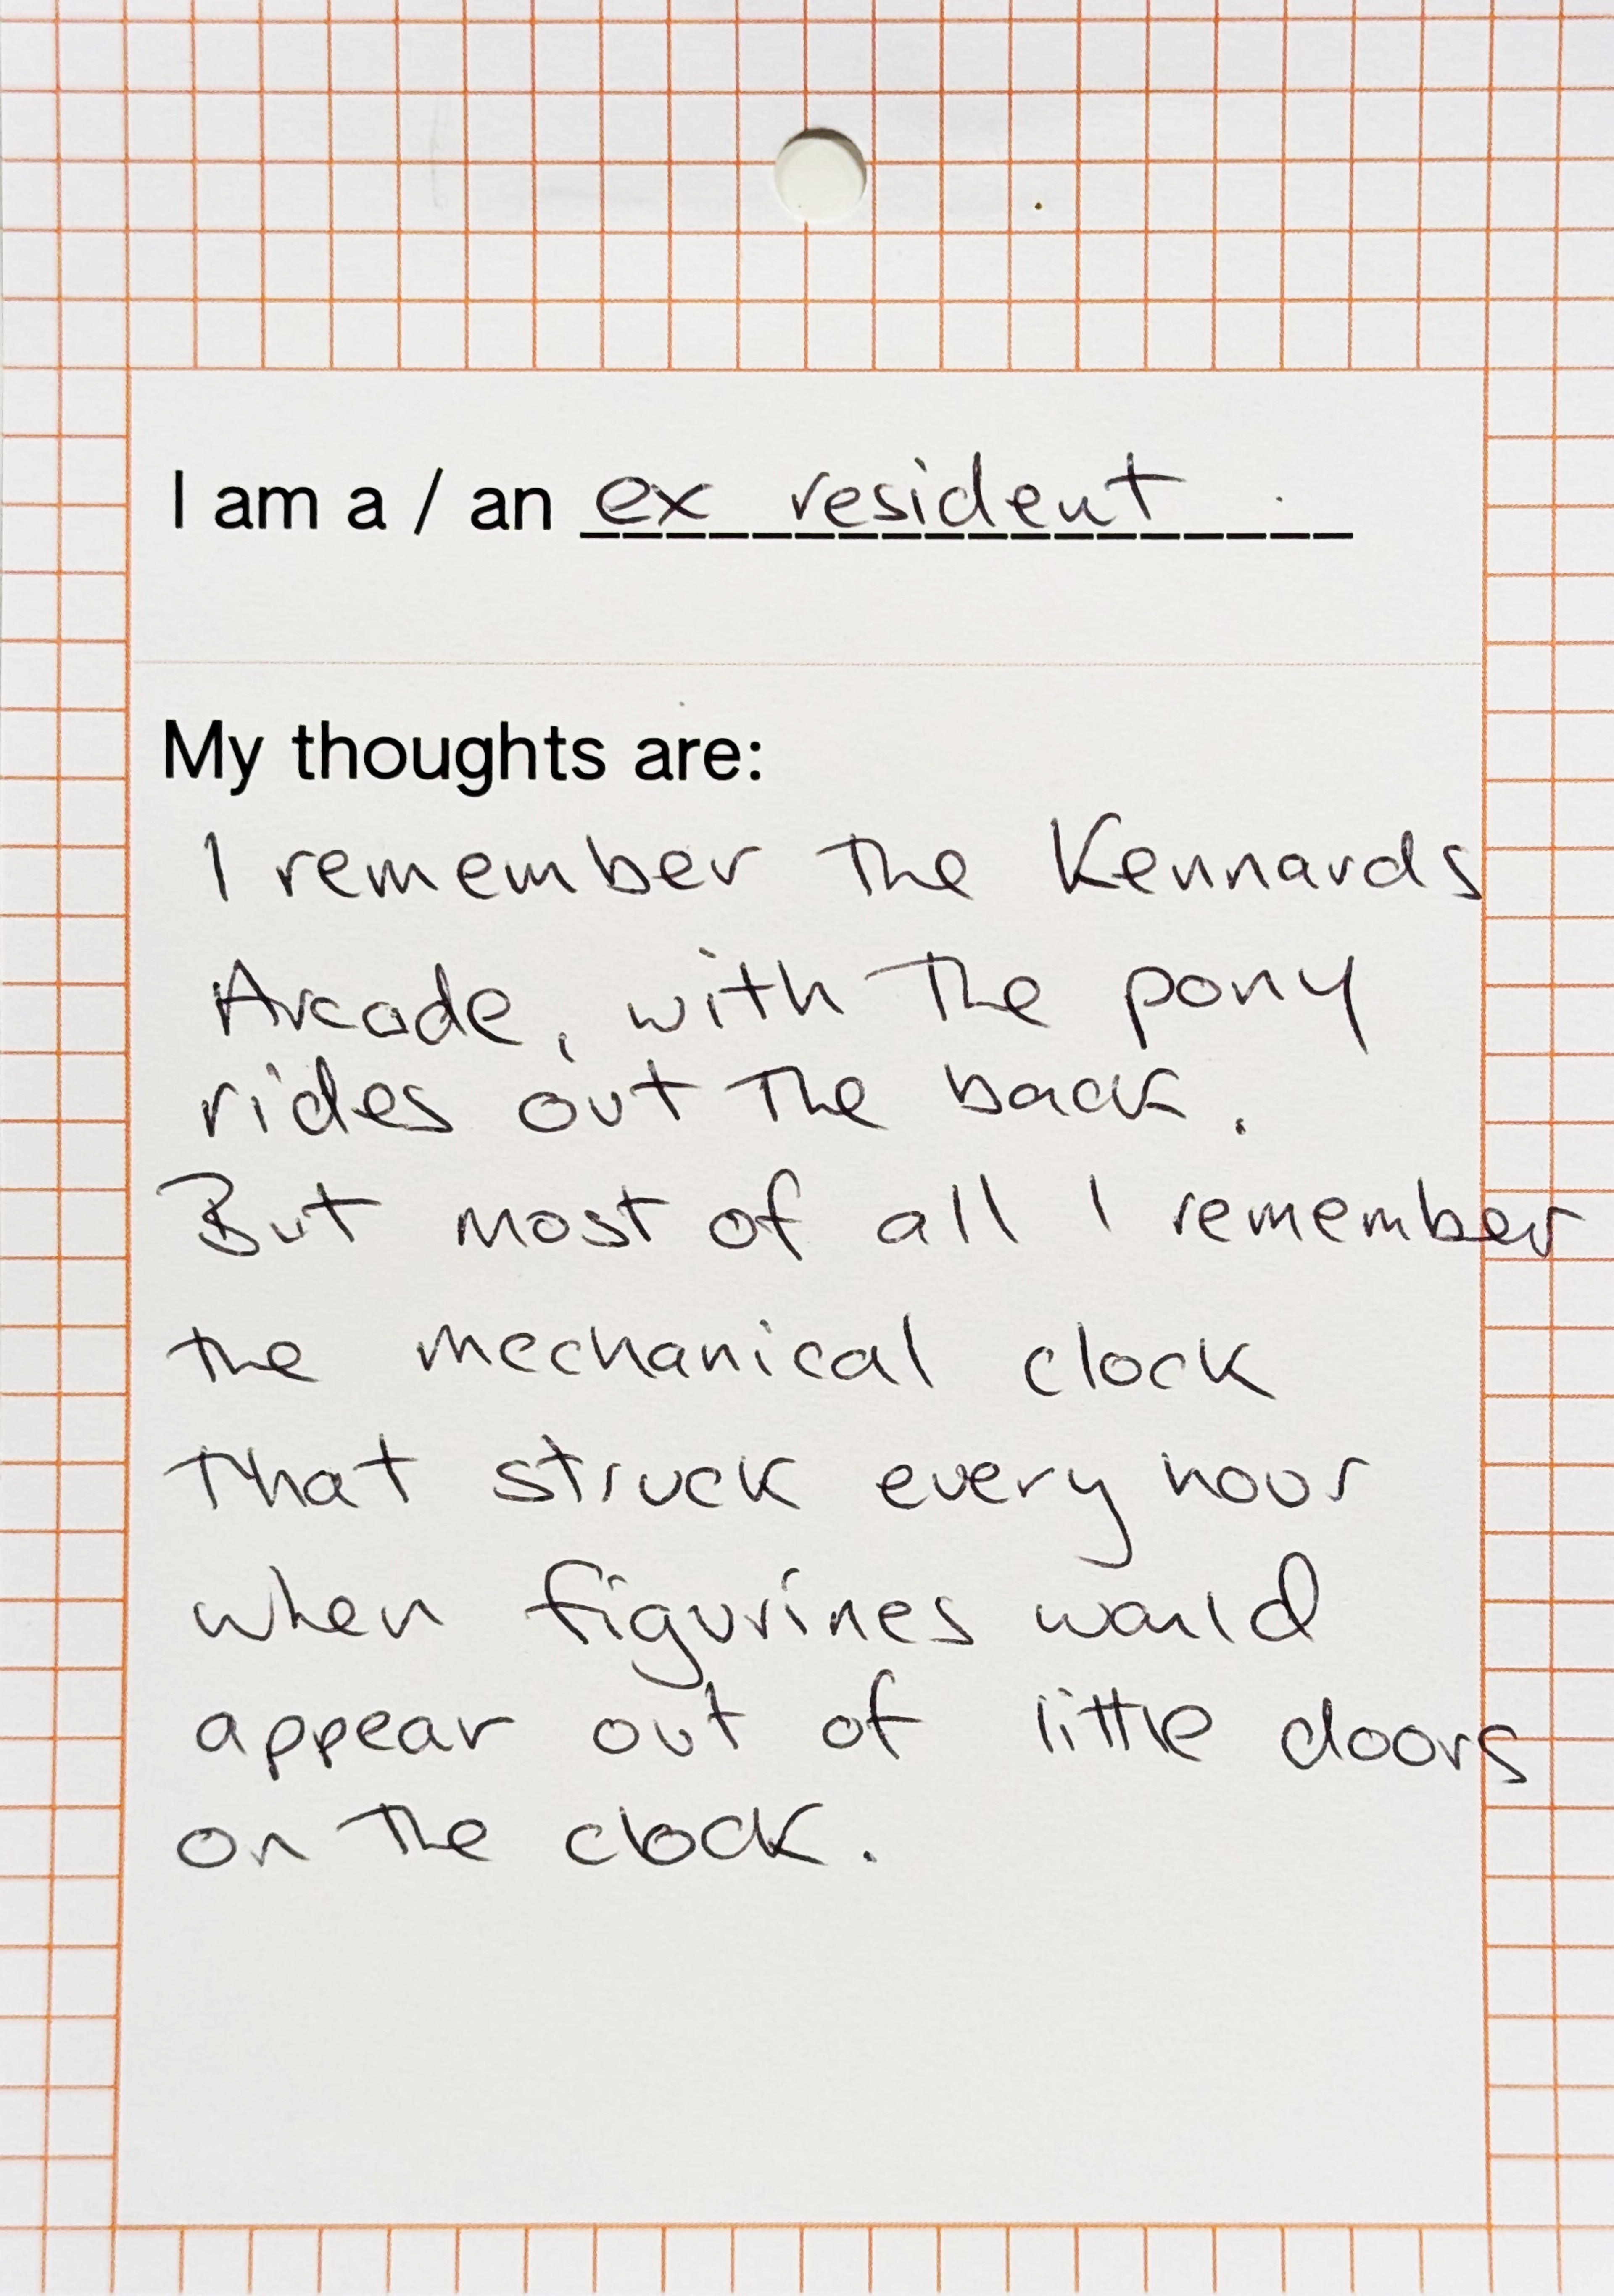 I am a / an ex resident
My thoughts are:
I remember the Kennards
Arcade, with the pony
rides out the back.
But most of all I remember
the mechanical clock
that struck every hour
when figurines would
appear out of little doors
on the clock.